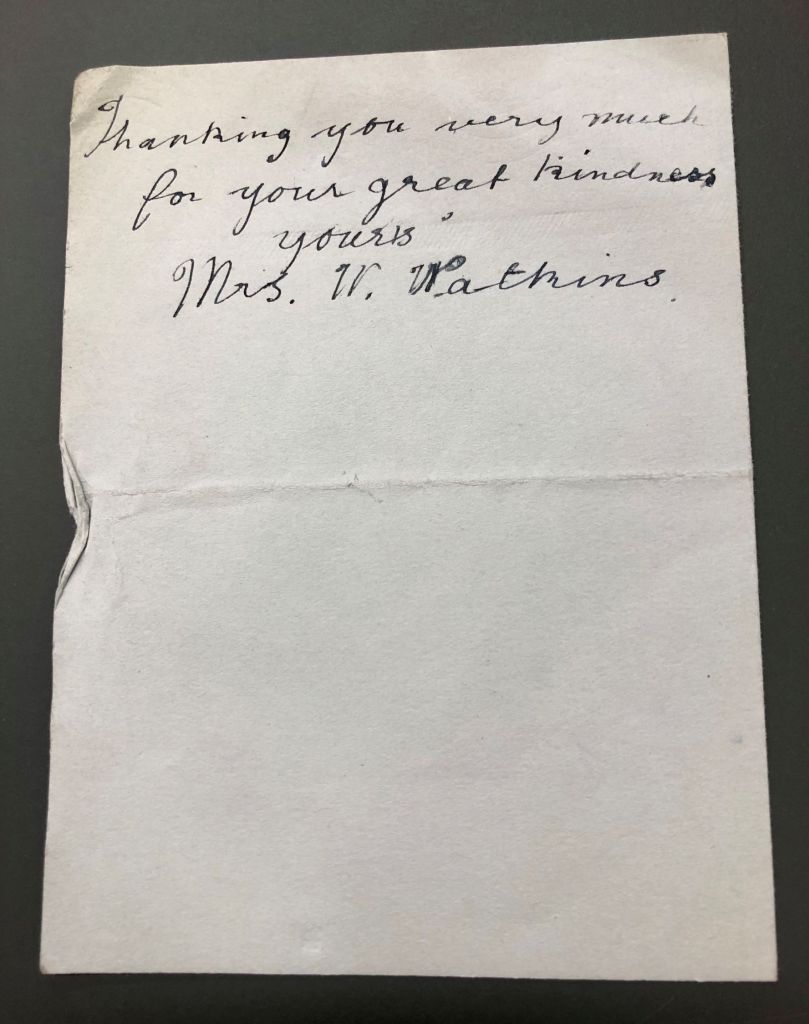 Thanking you very much
for your great kindness
yours
Mrs. W. Watkins.